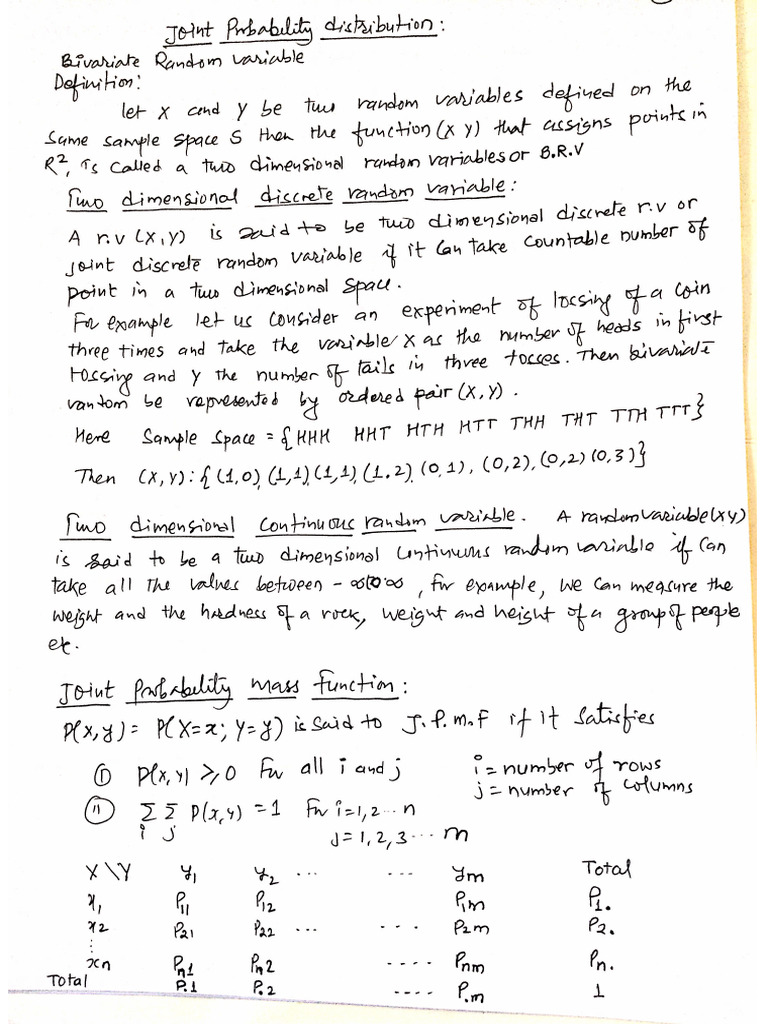 Joint Probability distribution:
Bivariate Random variable
Definition:
let X and Y be two random variables defined on the
Same sample space S then the function (X Y) that assigns points in
R², is called a two dimensional random variables or B.R.V
Two dimensional discrete random variable:
A r.v (X,Y) is said to be two dimensional discrete r.v or
joint discrete random variable if it can take countable number of
point in a two dimensional space.
For example let us consider an experiment of tossing of a coin
three times and take the variable X as the number of heads in first
tossing and Y the number of tails in three tosses. Then bivariate
random be represented by ordered pair (X,Y).
Here Sample space = {HHH HHT HTH HTT THH THT TTH TTT}
Then (X,Y): {(1,0),(1,1)(1,1),(1.2),(0,1), (0,2),(0,2)(0,3)}
Two dimensional continuous random variable. A random variable (X Y)
is said to be a two dimensional continuous random variable if can
take all the values between -∞ to ∞, for example, we can measure the
weight and the hardness of a rock, weight and height of a group of people
etc.
Joint Probability mass function:
P(x,y) = P(X=x; Y=y) is said to J.P.M.F if it satisfies
(i) P(x,y) ≥ 0 For all i and j i = number of rows
j = number of columns
(ii) Σ Σ P(x,y) = 1 For i=1,2...n
i j j=1,2,3...m
X\Y y₁ y₂ ... ... ym Total
x₁ P₁₁ P₁₂ P₁m P₁.
x₂ P₂₁ P₂₂ ... .... P₂m P₂.
⋮
xn Pn1 Pn2 .... Pnm Pn.
Total P.1 P.2 ..... P.m 1